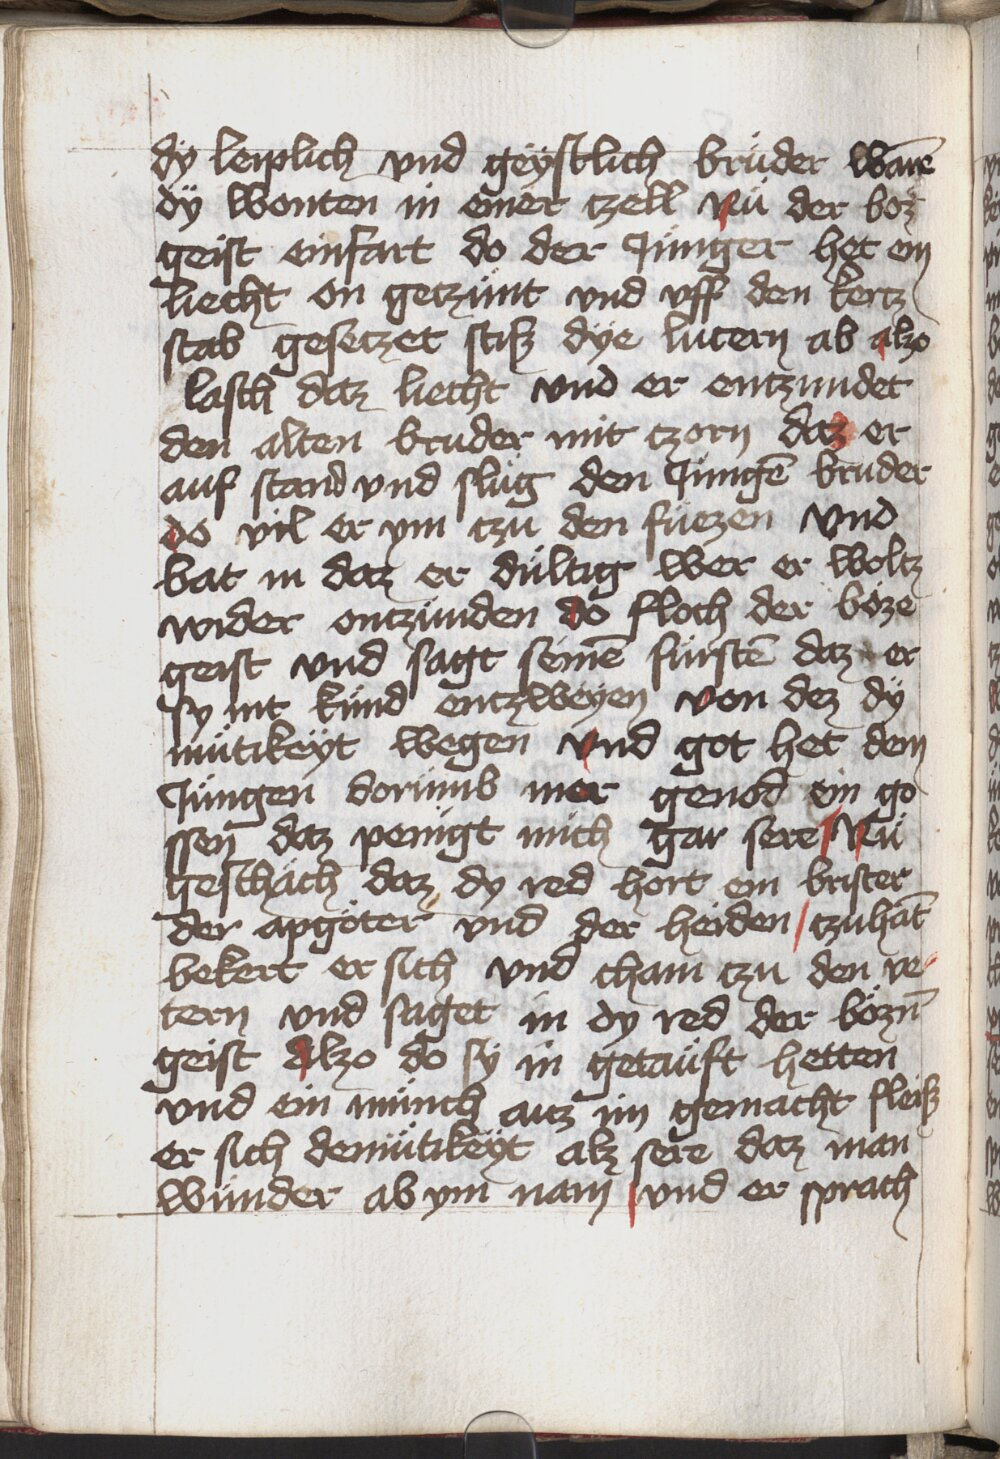 dÿ leiplich vnd geÿstlich brúder warē
dÿ wonten in einer czell Nü der boz
geist einfart do der Júnger het ein
liecht on geczünt vnd vff den kertz
stab gesetzet stiß dye lucern ab alzo
lasch daz liecht vnd er entzundet
den alten bruder mit czorn daz er
auf stand vnd slúg den Jungē bruder
do vil er ym czu den füezen vnd
bat in daz er dültig wer er woltz
wider entzünden do floch der böze
geist vnd sagt seinē fürstē daz er
sy nit künd entzweÿen von dez dÿ
mütikeÿt wegen vnd got het dem
Júngen dorümb mer genod ein go
ssen daz penigt mich gar sere Nü
geschäch daz dy red hört ein brister
der apgöter vnd der heiden czuhāt
bekert er sich vnd cham czu den ve
tern vnd saget in dy red der bözn̄
geist Alzo do sÿ in getauft hetten
vnd ein münch auz im gemacht fleiß
er sich demütikeÿt alz sere daz man
wünder ab ym nam vnd er sprach